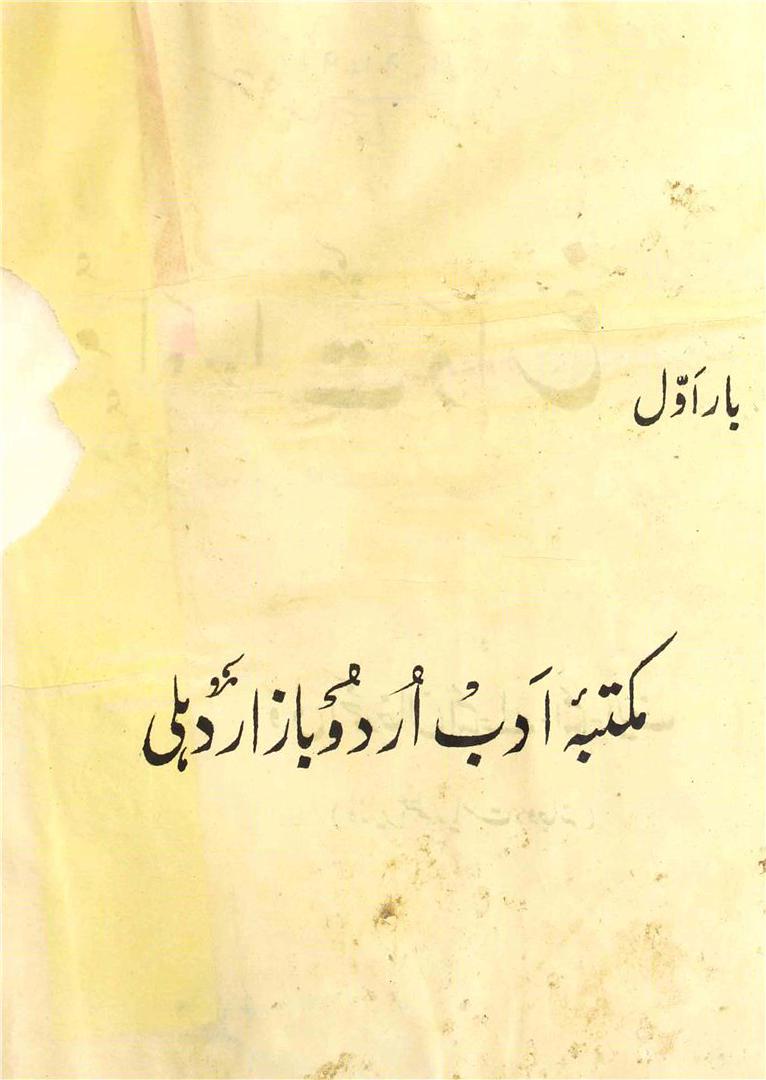 بار اَوّل
مکتبۂ اَدبْ اُردُو بازار دہلی